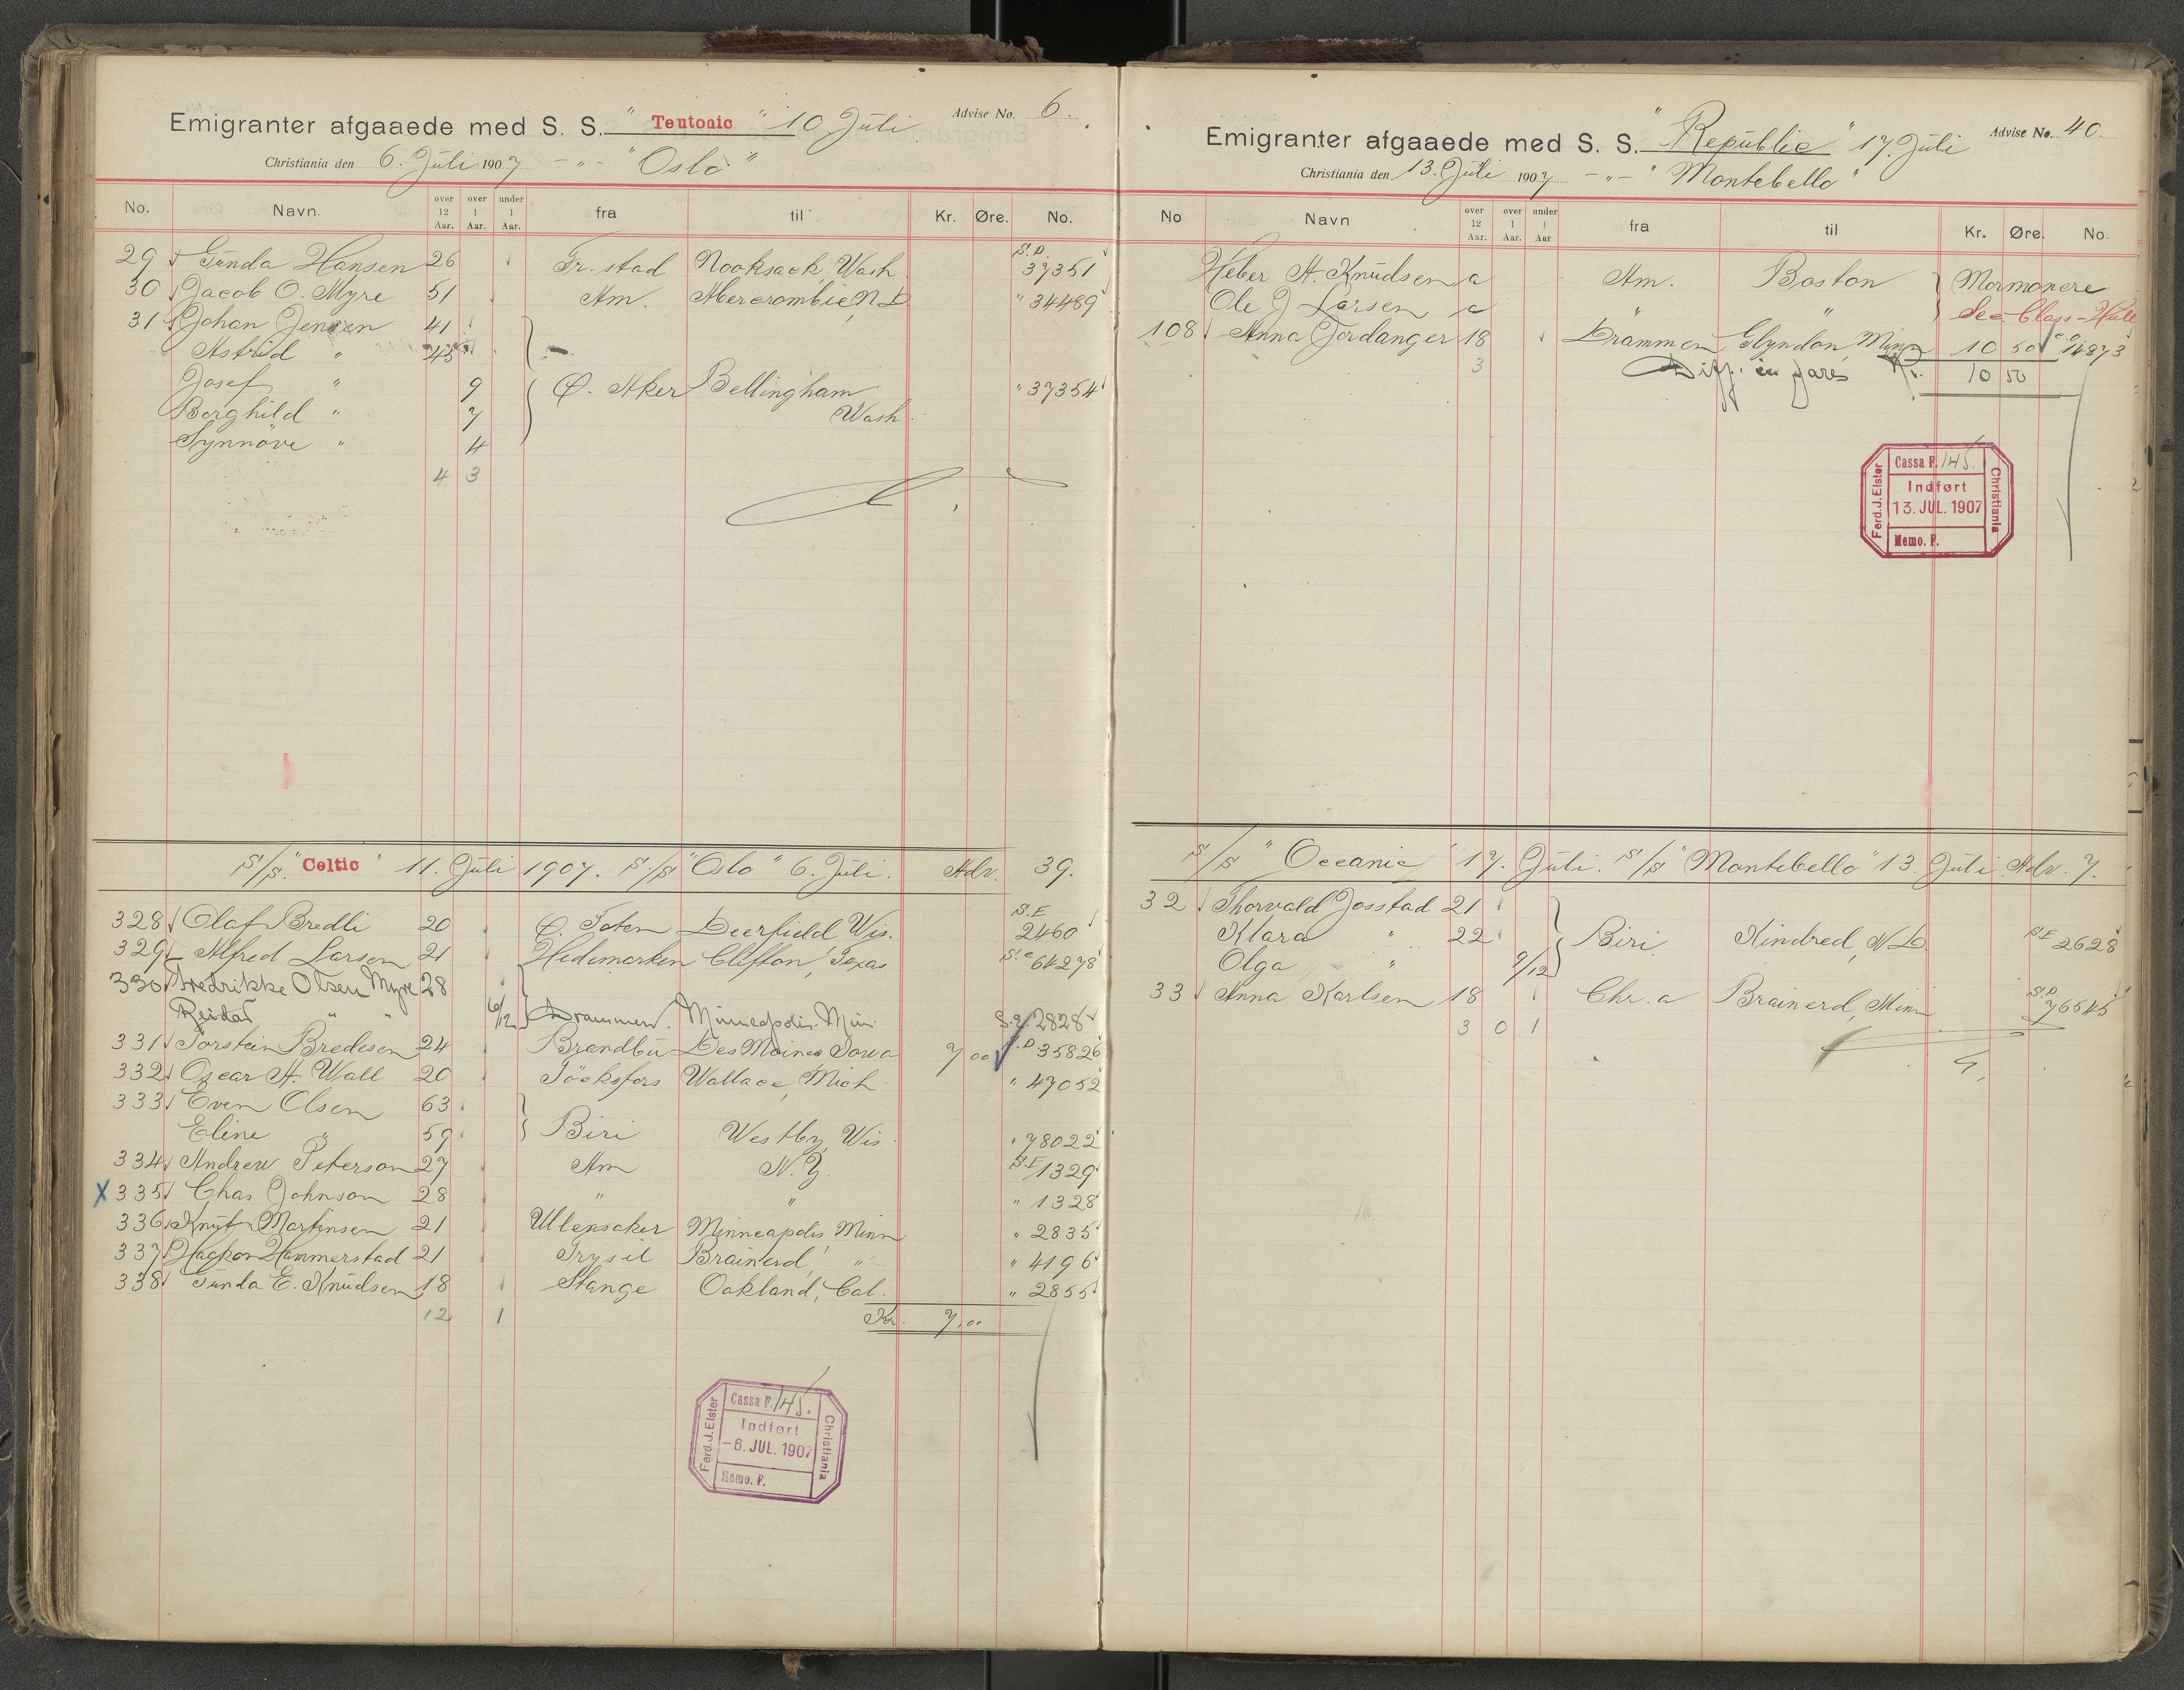 Emigranter afgaaede med S. S. "Teutonic" 10 Juli Advise No. 6.
Christiania den 6. Juli 1907 -"- "Oslo"
No. Navn. over 12 Aar. over 1 Aar. under 1 Aar. fra til Kr. Øre. No.
29 Gunda Hansen 26 Fr.stad Nooksack, Wash S.D. 37351
30 Jacob O. Myre 51 Am. Abercrombie, N.D. " 34489
31 Johan Jensen 41
Astrid " 45
Josef " 9 Ø. Aker Bellingham " 37354
Borghild " 7 Wash.
Synnöve " 4
4 3
S/S. "Celtic" 11. Juli 1907. S/S "Oslo" 6. Juli. Adv. 39.
328 Olaf Bredli 20 Ø. Toten Deerfield Wis. S.E 2460
329 Alfred Larsen 21 Hedemarken Clifton, Texas S.C 64278
330 Fredrikke Olsen Myre 28
Reidar " " 6/12 Drammen. Minneapolis. Min. 2828
331 Torstein Bredesen 24 Brandbu Des Moines Iowa 7 00 S.D 35826
332 Oscar A. Wall 20 Töcksfors Wallace, Mich. " 47052
333 Even Olsen 63
Eline " 59 Biri Westby, Wis. " 78022
334 Andrew Peterson 27 Am N.Y. S.E 1329
X 335 Chas Johnson 28 " " " 1328
336 Knut Martinsen 21 Ullensaker Minneapolis Minn " 2835
337 Haakon Hammerstad 21 Trysil Brainerd, " " 4196
338 Gunda E. Knudsen 18 Stange Oakland, Cal. " 2855
12 1 Kr. 7,00
Ferd. J. Elster
Cassa F. 145.
Indført
-6. JUL. 1907
Memo. F.
Christiania
Emigranter afgaaede med S. S. "Republic" 17. Juli Advise No. 40.
Christiania den 13. Juli 1907 -"- "Montebello"
No Navn over 12 Aar. over 1 Aar. under 1 Aar fra til Kr. Øre. No.
Heber A. Knudsen a Am. Boston Mormonere
Ole J Larsen a " " Sec. Class - Hull
108 Anna Jordanger 18 Drammen Glyndon Minn 10 50 14873
3 Diff. in fares Kr. 10 50
Ferd. J. Elster
Cassa F. 145.
Indført
13. JUL. 1907
Memo. F.
Christiania
S/S "Oceanic" 17. Juli. S/S "Montebello" 13. Juli. Adv. 7.
32 Thorvald Josstad 21
Klara " 22 Biri Kindred, N.D. S.E 2628
Olga " 9/12
33 Anna Karlsen 18 Chr.a Brainerd, Minn S.D. 76545
3 0 1